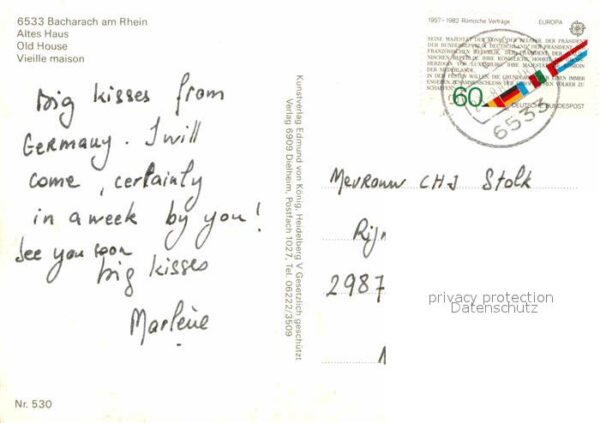 6533 Bacharach am Rhein
Altes Haus
Old House
Vieille maison
big kisses from
Germany. I will
come, certainly
in a week by you!
See you soon
big kisses
Marlène
Nr. 530
Kunstverlag Edmund von König, Heidelberg V Gesetzlich geschützt
Verlag 6909 Dielheim, Postfach 1027, Tel. 06222/3509
1957-1982 Römische Verträge EUROPA
SEINE MAJESTÄT DER KÖNIG DER BELGIER, DER PRÄSIDENT
DER BUNDESREPUBLIK DEUTSCHLAND, DER PRÄSIDENT
60
DEUTSCHE BUNDESPOST
6533
Mevrouw CHJ Stolk
Rijn
2987
privacy protection
Datenschutz